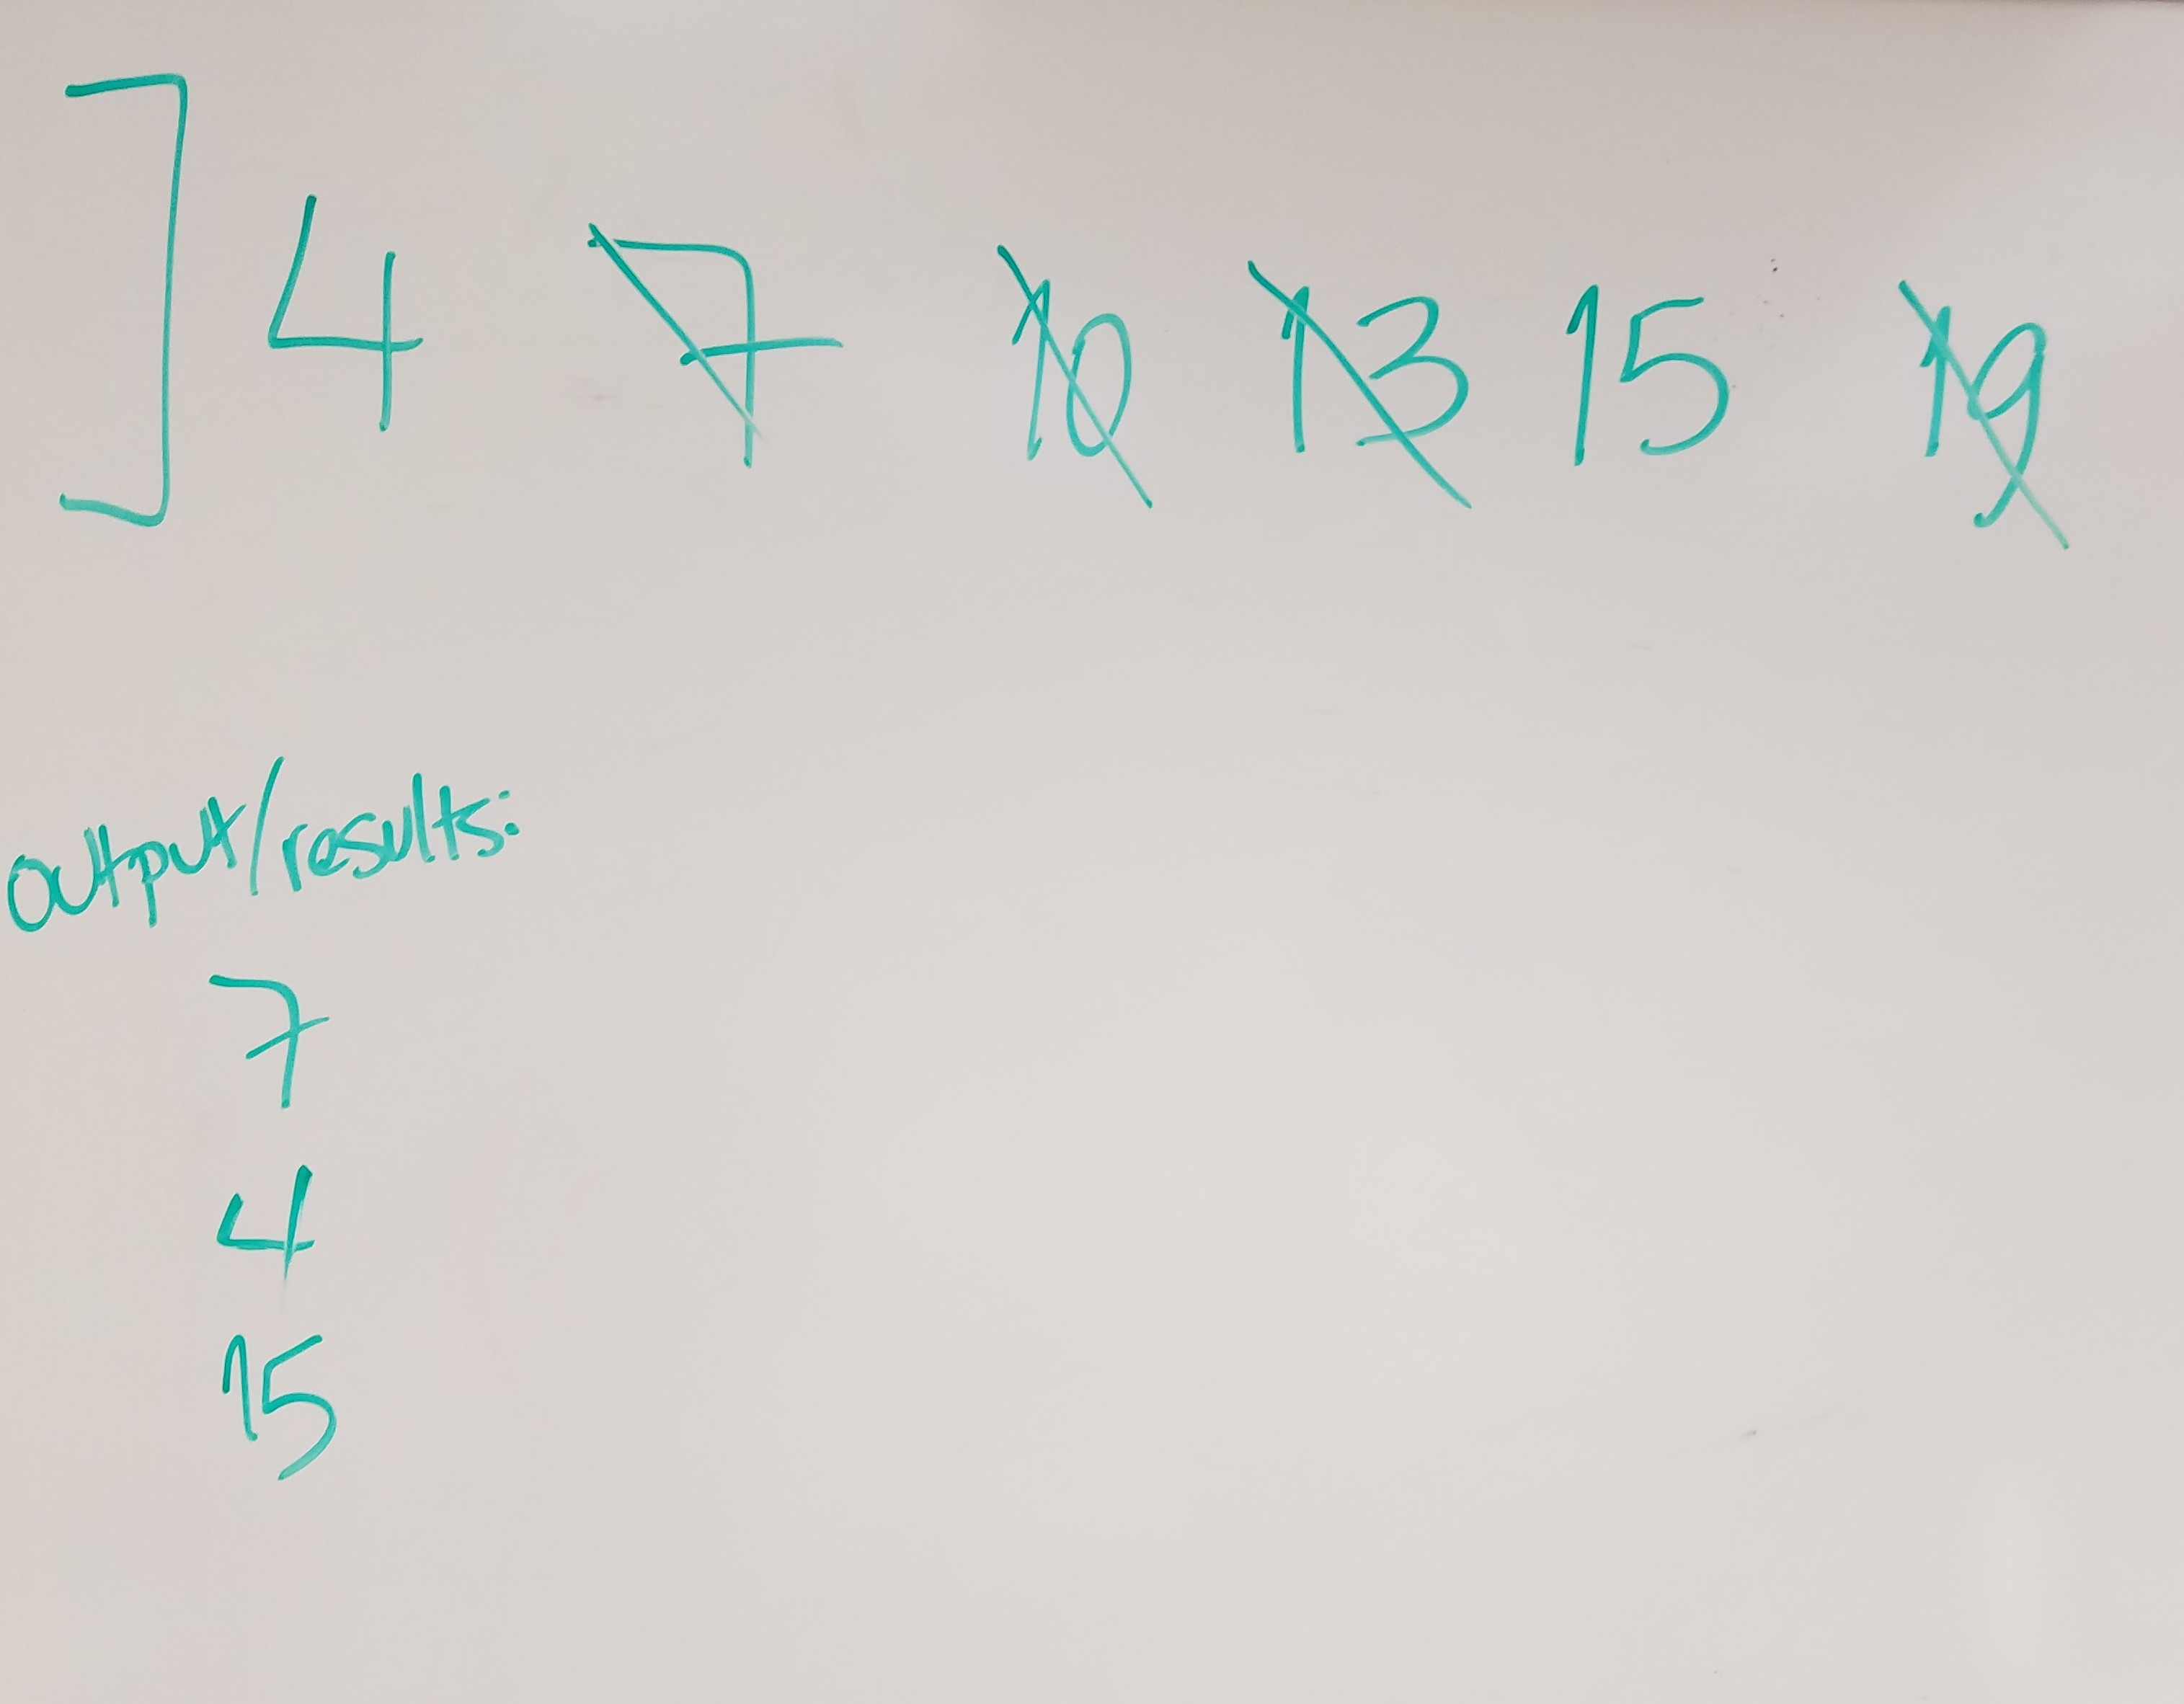 ] 4 7 10 13 15 19
output/results:
7
4
15